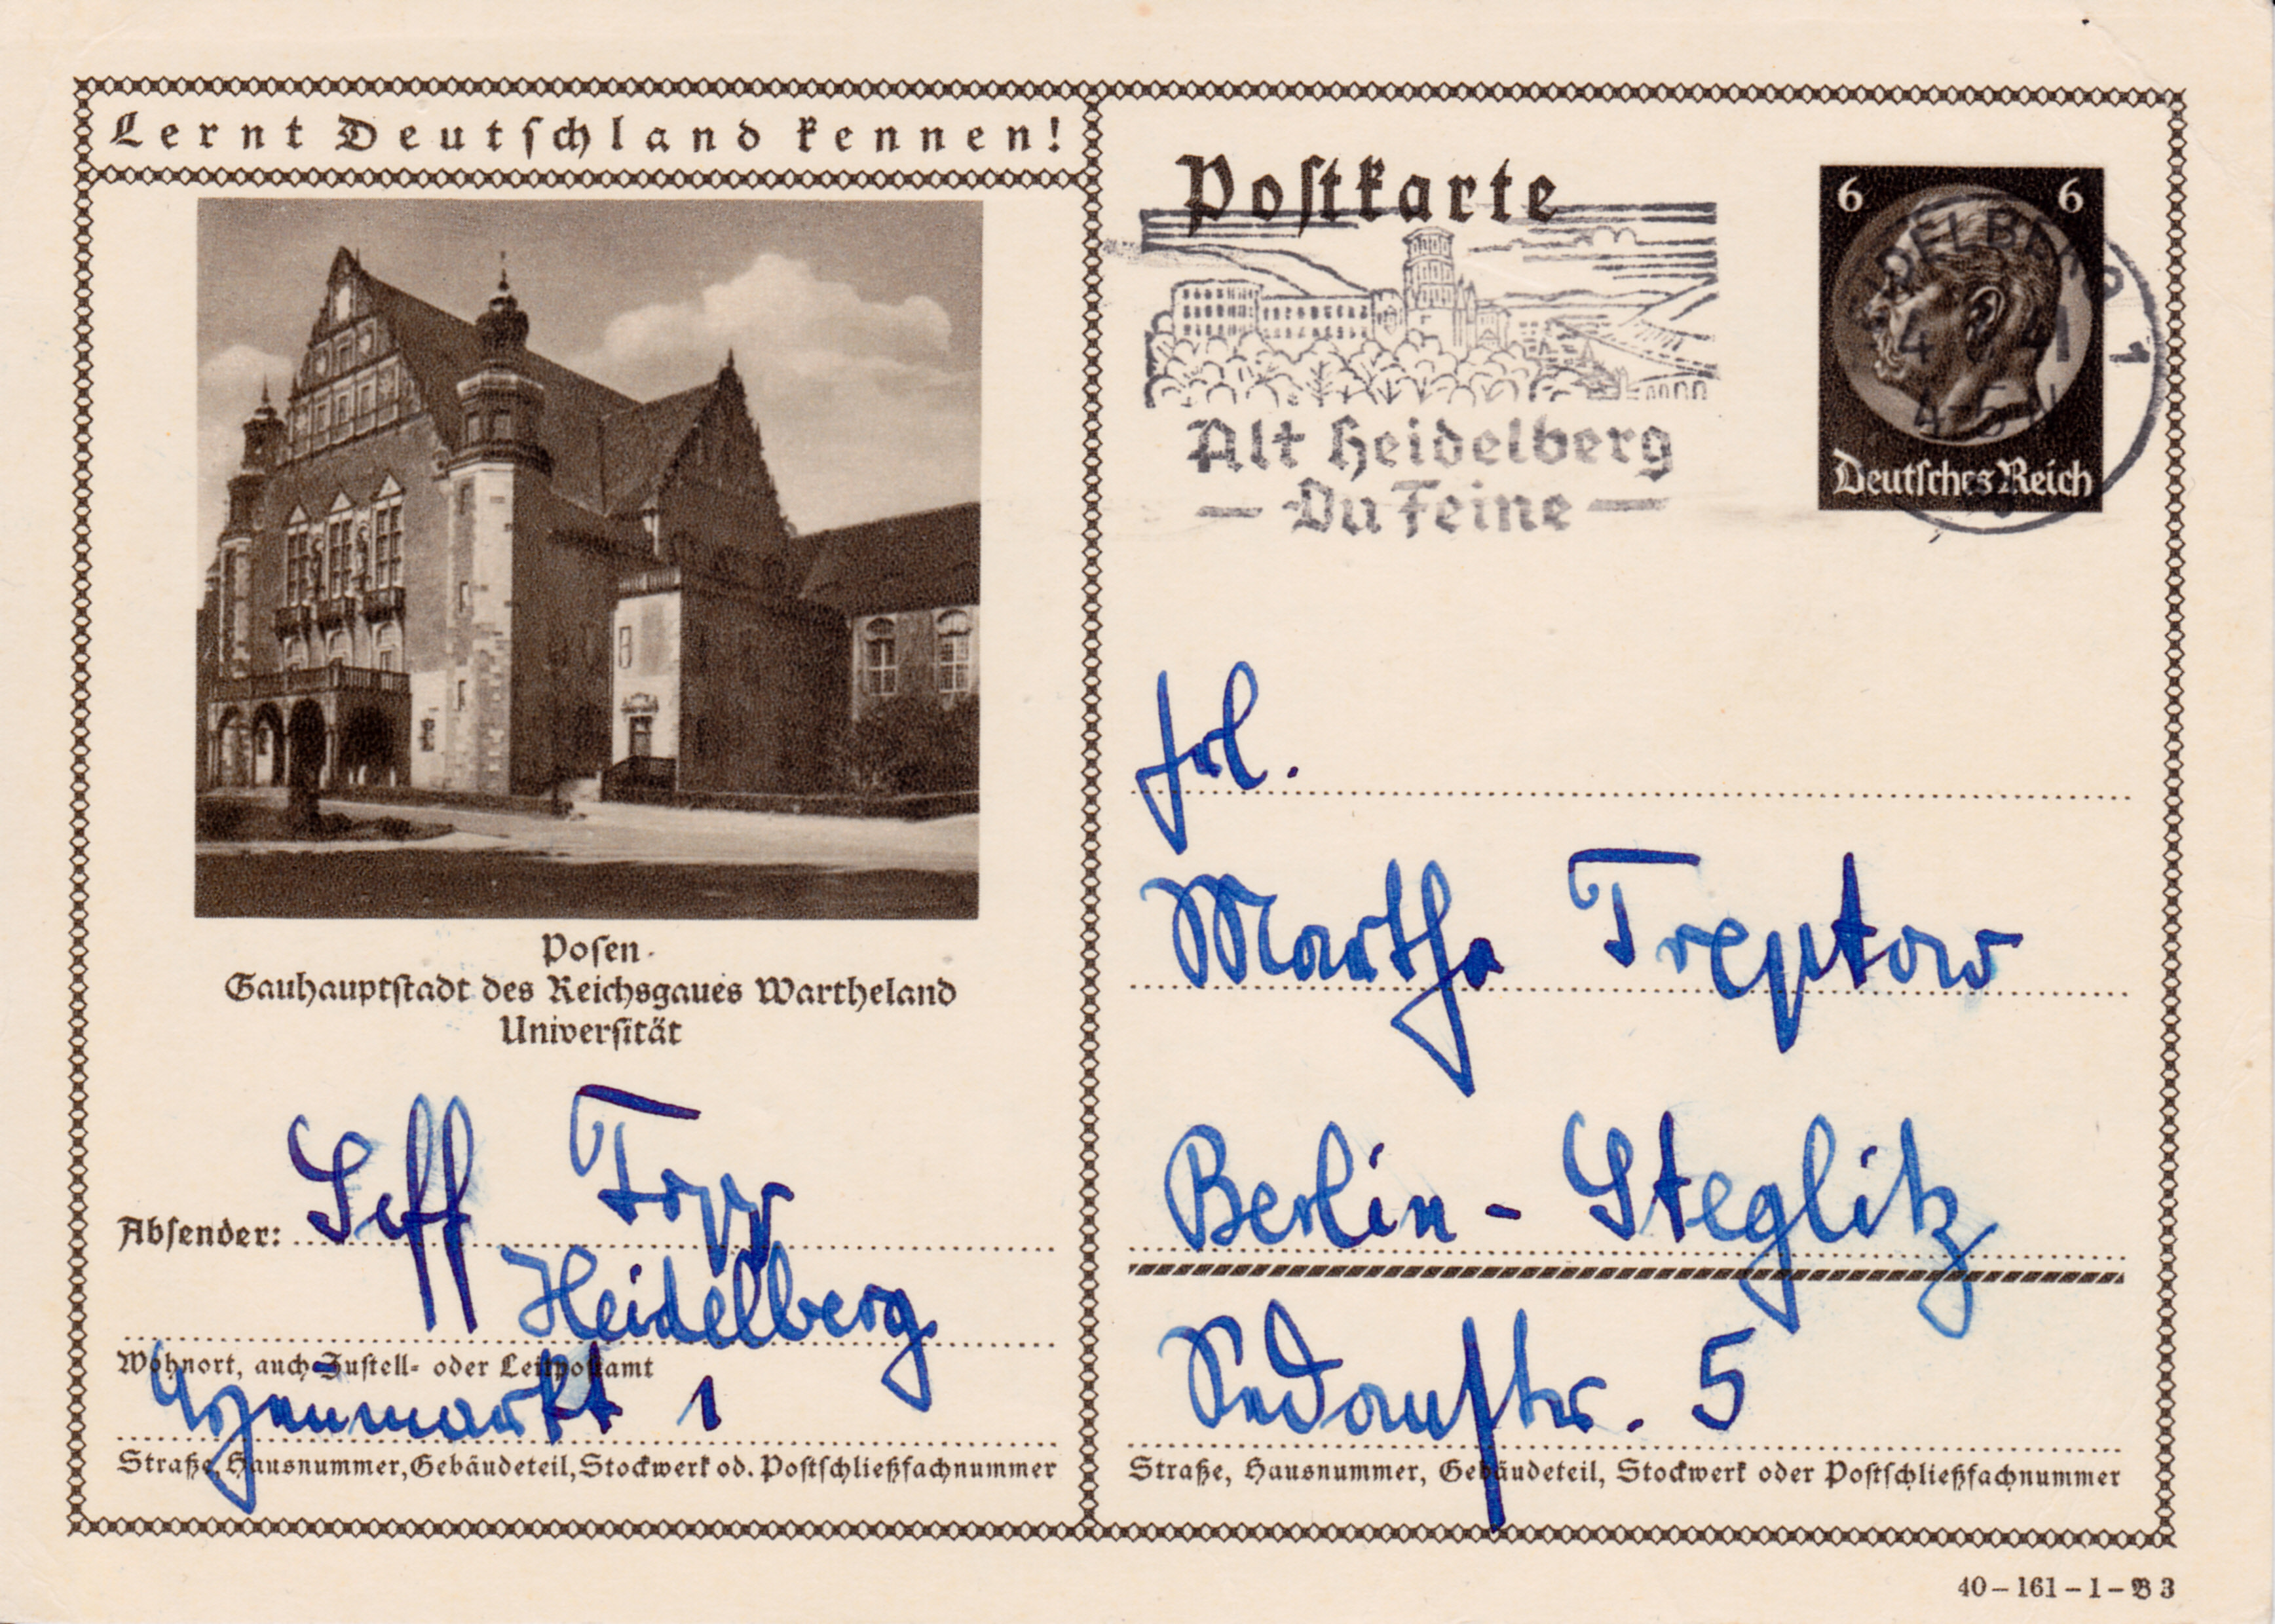 Lernt Deutschland kennen!
Posen
Gauhauptstadt des Reichsgaues Wartheland
Universität
Absender: Seff Topp
Heidelberg
Wohnort, auch Zustell- oder Leitpostamt
markt 1
Straße, Hausnummer, Gebäudeteil, Stockwerk od. Postschließfachnummer
Postkarte
Alt Heidelberg
— Du Feine —
6 6
Deutsches Reich
DELBERG 1
4 41
4-5
Frl.
Martha Treptow
Berlin - Steglitz
Sedanstr. 5
Straße, Hausnummer, Gebäudeteil, Stockwerk oder Postschließfachnummer
40 – 161 – 1 – B 3